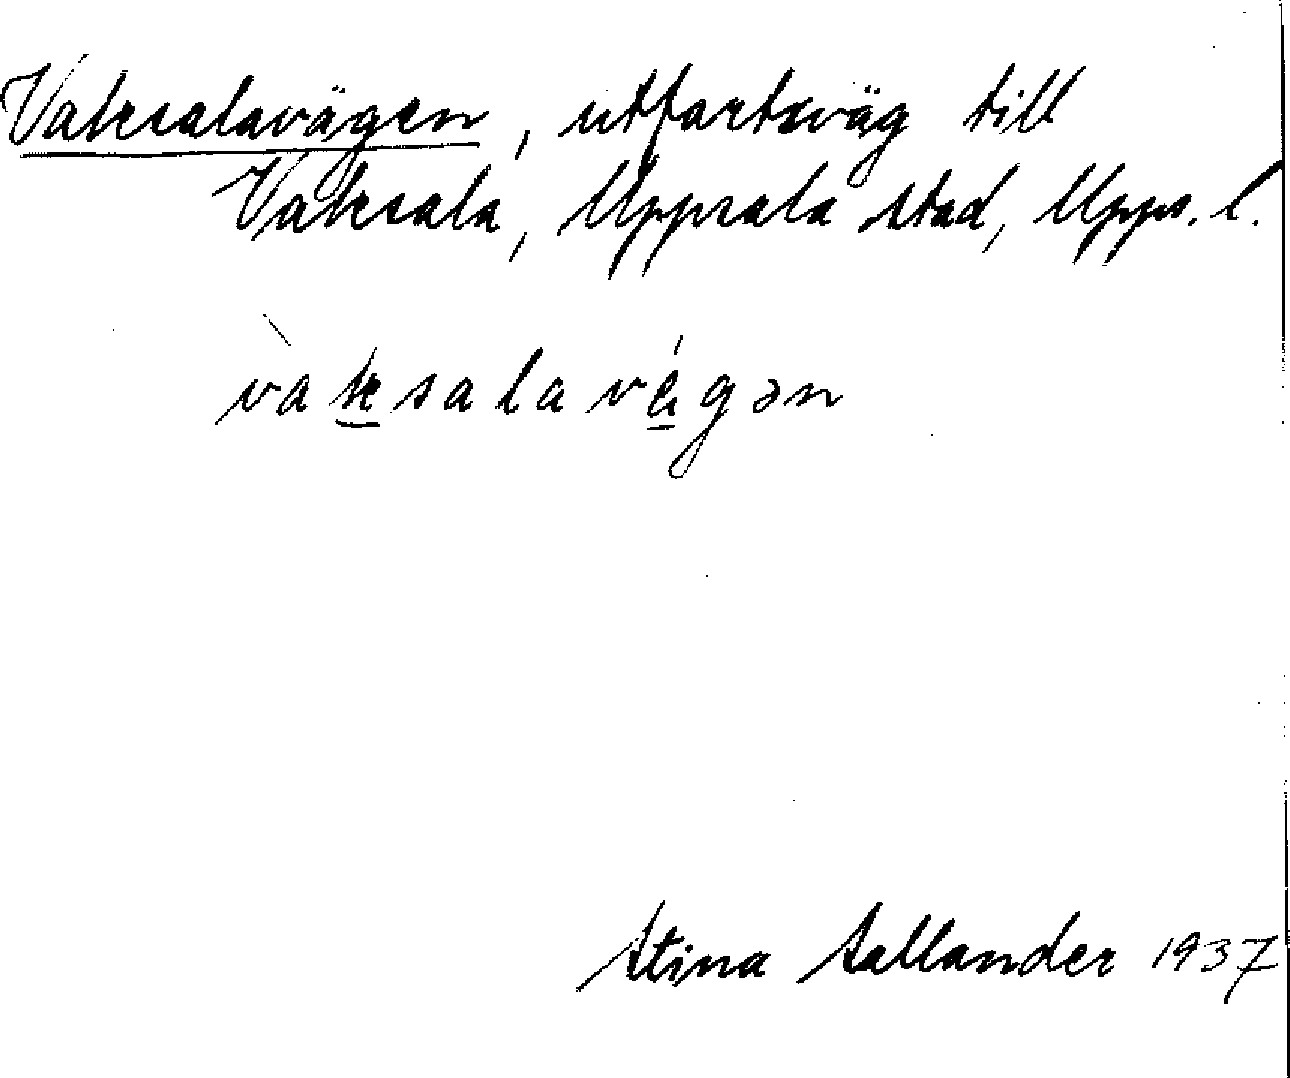 Vaksalavägen, utfartsväg till
Vaksala, Uppsala stad, Upps. l.
vàksalavégən
Stina Sallander 1937